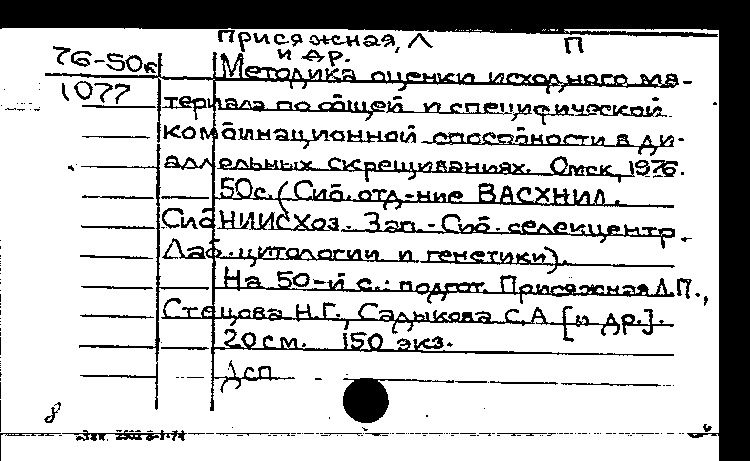 Присяжная, Л П
и др.
76-50к Методика оценки исходного ма-
1077 териала по общей и специфической
комбинационной способности в ди-
аллельных скрещиваниях. Омск, 1976.
50с. (Сиб. отд-ние ВАСХНИЛ.
СибНИИСХоз. Зап.-Сиб. селекцентр.
Лаб. цитологии и генетики).
На 50-й с.: подгот. Присяжная Л.П.,
Стецова Н.Г., Садыкова С.А [и др.].
20 см. 150 экз.
Дсп
8